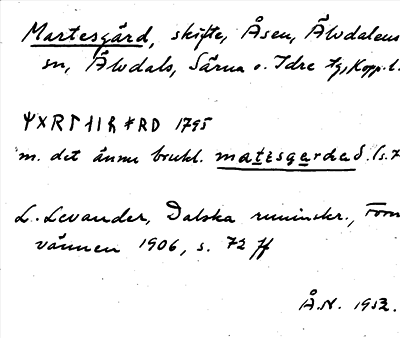 Martesgård, skifte, Åsen, Älvdalens
sn, Älvdals, Särna o. Idre tg, Kopp. l.
1795
m. det ännu brukl. matesgardað. (s.
L. Levander, Dalska runinskr., Forn
vännen 1906, s. 72 ff
Å.N. 1952.